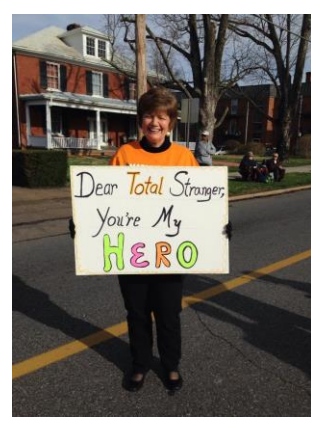 Dear Total Stranger,
You're My
HERO